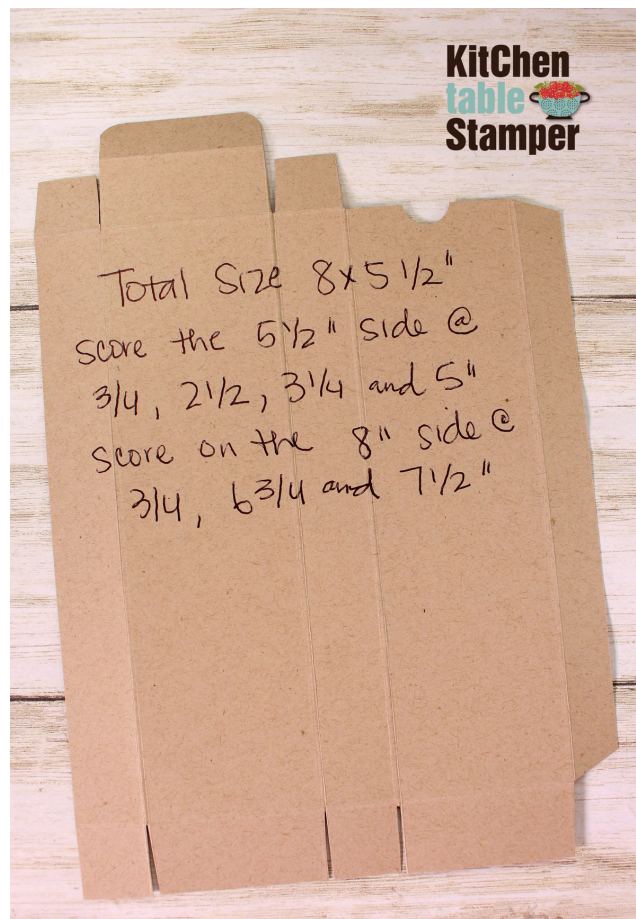 KitChen
table
Stamper
Total Size 8x5 1/2"
score the 5 1/2" side @
3/4, 2 1/2, 3 1/4 and 5"
score on the 8" side @
3/4, 6 3/4 and 7 1/2"